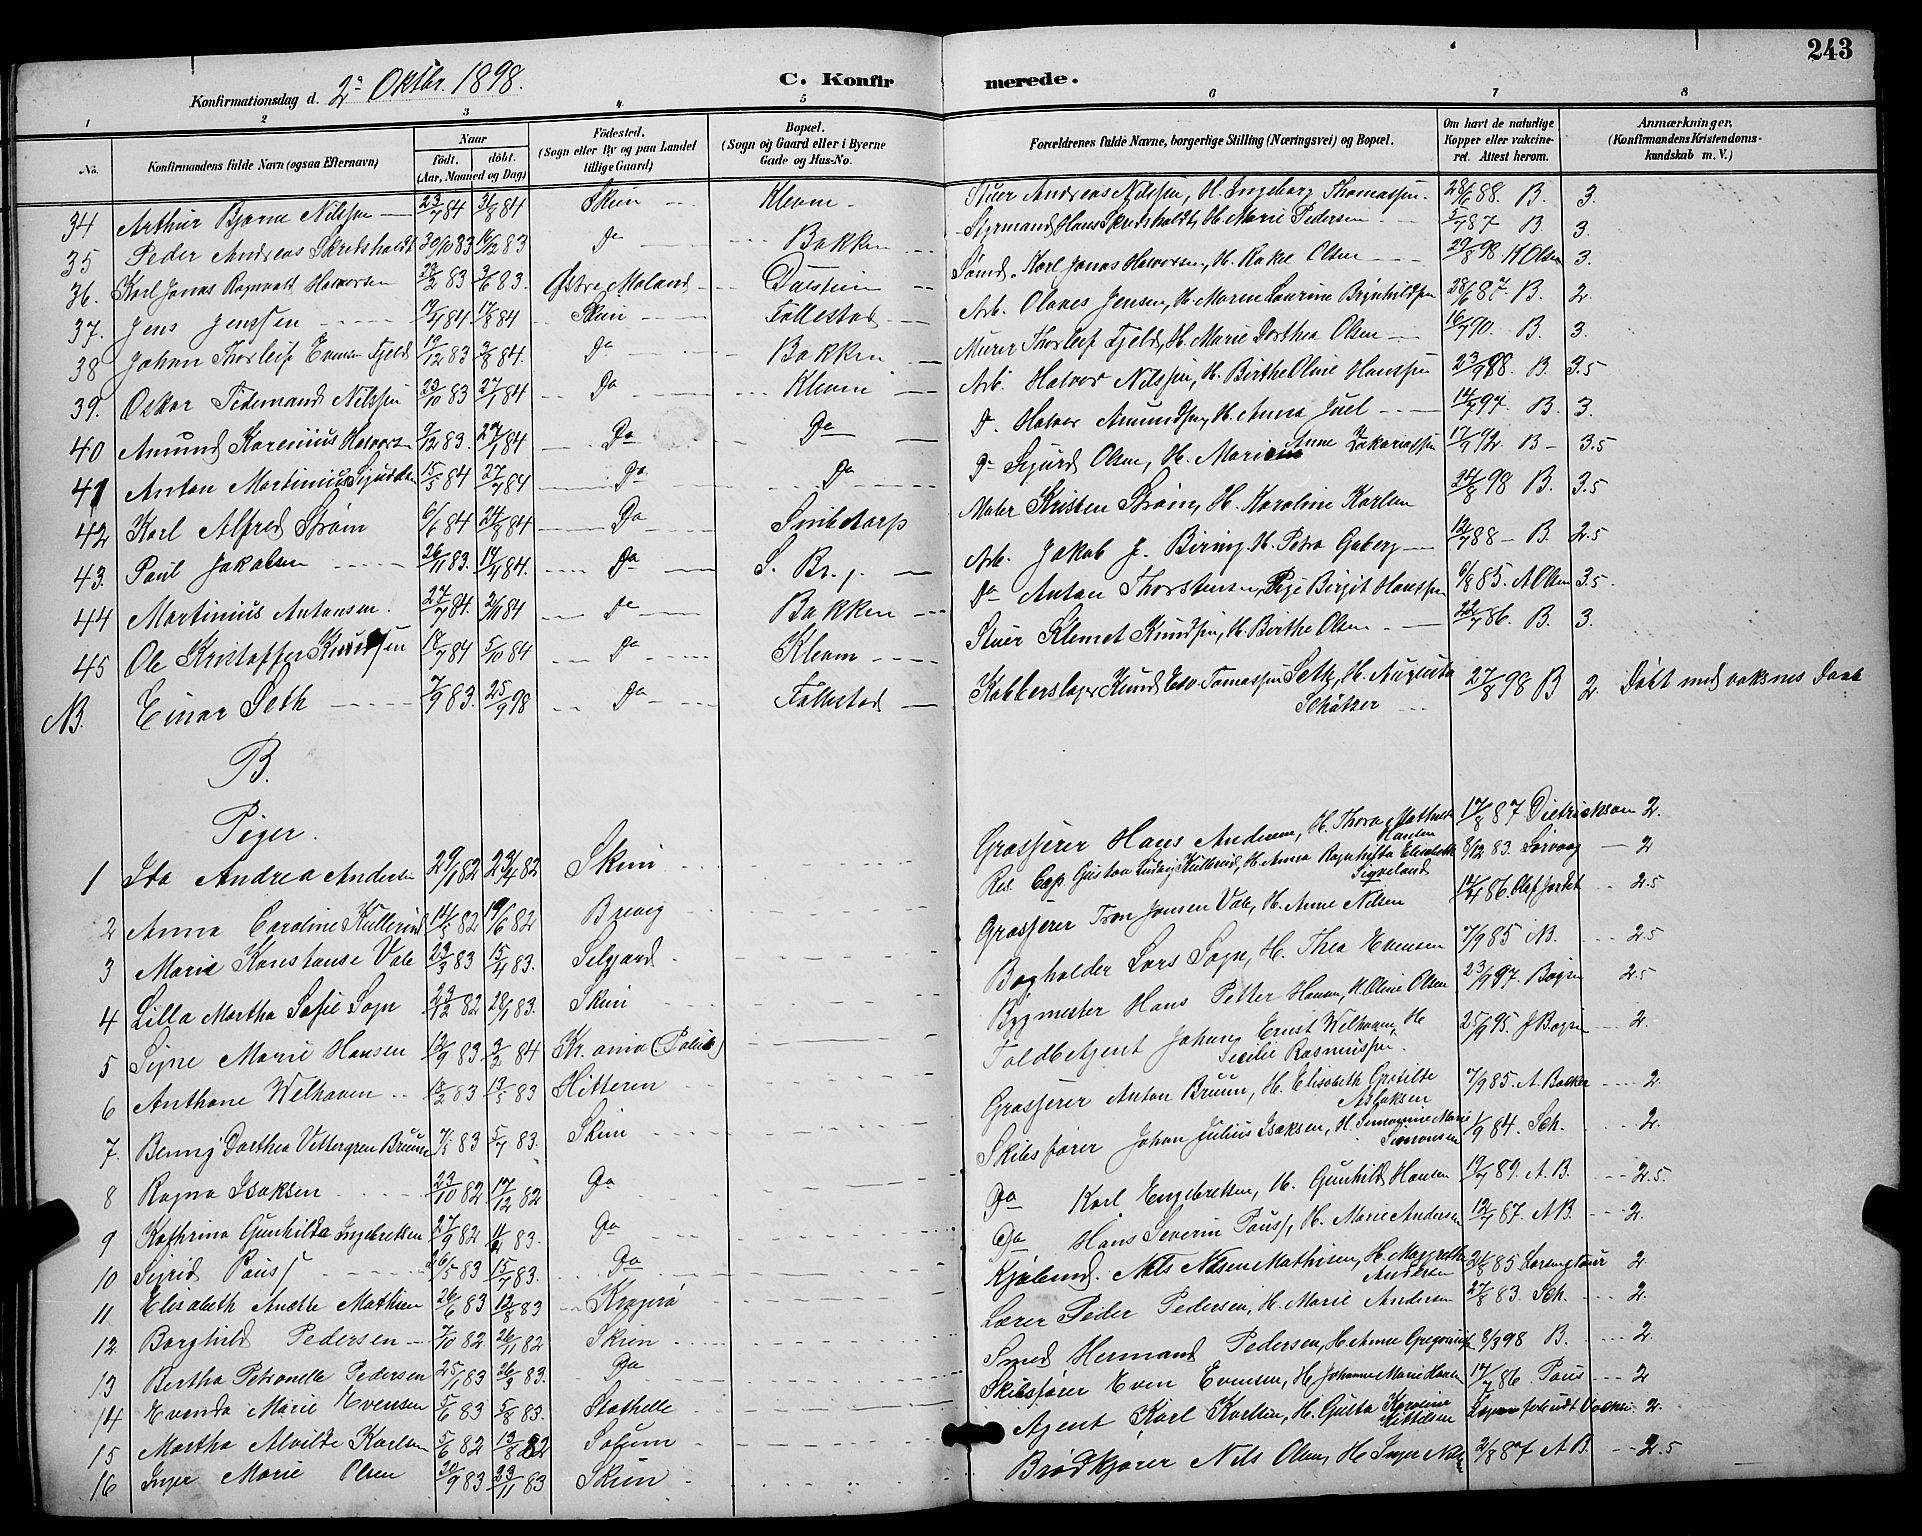 243
Konfirmationsdag d. 2a Oktbr. 1898.
C. Konfirmerede.
1 2 3 4 5 6 7 8
No.
Konfirmandens fulde Navn (ogsaa Efternavn)
Naar
født. døbt.
(Aar, Maaned og Dag)
Fødested.
(Sogn eller By og paa Landet tillige Gaard)
Bopæl.
(Sogn og Gaard eller i Byerne Gade og Hus-No.
Forældrenes fulde Navne, borgerlige Stilling (Næringsvei) og Bopæl.
Om havt de naturlige Kopper eller vakcineret. Attest herom.
Anmærkninger,
(Konfirmandens Kristendomskundskab m. V.)
34 Arthur Bjarne Nilssen 23/7 84 31/8 84 Skien Kleven Stuer Andreas Nilssen, H. Ingeborg Thomassen 28/6 88. B. 3.
35 Peder Andreas Skredsholdt 30/10 83 16/12 83 Do Bakken Styrmand Hans Skredsholdt, H. Marie Pedersen 5/7 87 B. 3.
36. Karl Jonas Ragnvald Halvorsen 22/2 83 3/6 83. Østre Moland Sømd. Karl Jonas Halvorsen, H. Rakel Olsen 29/8 98 H Olsen 3.
37. Jens Jenssen 84. 17/8 84 Skien Follestad Arb. Olaves Jensen, H. Maren Lavrine Brynhildsen 28/6 87. B. 2.
38 Johan Thorleif Evensen Fjeld 19/12 83 3/8 84. Do Bakken Murer Thorleif Fjeld, H. Marie Dorthea Olsen 16/7 90. B. 3.
39. Oskar Tidemand Nilssen 23/10 83 27/1 84 Do Kleven Arb. Halvor Nilssen, H. Birthe Oline Hanssen 23/9 88. B. 3.5
40 Amund Karenius Halvors. 9/12 83. 27/1 84 Do Do D. Halvor Amundsen, H. Anna Juel 14/7 97. B. 3.
41 Anton Martinius Sigurdsen 15/5 84 27/7 84 Do Do Do Sigurd Olsen, H. Anne Zakariassen 17/9 92. B 3.5
42 Karl Alfred Strøm 6/6 84 24/8 84 Do Snibetorp Maler Kristen Strøm, H. Karoline Karlsen 24/8 98 B. 3.5
43. Paul Jakobsen 26/11 83. 14/4 84. Do S. Br.g. Arb. Jakob J. Biring, H. Petra Gaberg 12/7 88 B. 2.5
44 Martinius Antonsen. 27/7 84. 2/11 84 Do Bakken Do Anton Thorstensen, Pige Birgit Hanssen 9/8 85. A Olsen 3.5.
45 Ole Kristoffer Knudsen 18/7 84 5/10 84 Do Kleven Stuer Klemet Knudsen, H. Birthe Olsen 22/7 86. B. 3.
NB. Einar Seth 7/9 83. 25/9 98 Do Follestad Kobberslager Knud Edv. Tomassen Seth, H. Augusta Schötzer 27/8 98 B 2. Døbt med voksnes Daab
B.
Piger.
1 Ida Andrea Andersen 29/1 82 23/4 82 Skien Grosserer Hans Andersen, H. Thora Mathilde Hansen 17/8 87 Dietrickson 2.
2 Anna Caroline Kullerud 14/5 82 19/6 82 Brevig Res. Cap Gustav Ludvig Kullerud, H. Anna Ragnhilda Elisabeth 8/12 83. Lørvaag 2
3 Marie Konstanse Vale 23/3 83 15/4 83. Selgord Grosserer Tron Jensen Vale, H. Anne Nilsen 12/4 86. Olaf Jordet 2.5
4 Lilla Martha Sofie Sogn 23/12 82 28/1 83. Skien Bogholder Lars Sogn, H. Thea Evensen 7/9 85 NB. 2.5
5 Signe Marie Hansen 12/9 83. 3/2 84 Kr.ania Bygmester Hans Petter Hansen, H. Oline Olsen 23/9 97. Bøgen 2.5
6 Anthone Welhaven 18/2 83 13/5 83 Hitteren Toldbetjent Johan Ernst Welhaven, H Cecilie Rasmussen. 25/9 95. J Bøgen 2.
7. Benny Dorthea Vettergren Bruun 7/5 83 5/7 83. Skien Grosserer Anton Bruun, H. Elisabeth Gotilde Aslaksen 7/9 85. A. Backer 2.
8 Ragna Isaksen 23/10 82 17/12 82 Do Skibsfører Johan Julius Isaksen, H. Marie Simonsen 1/9 84. Sch. 2.
9 Kathrina Gunhilda Ingebretsen 27/9 82 83. Do Do Karl Engebretsen, H. Gunhild Hansen 19/7 89. A. B. 2.5.
10 Sigrid Paus 26/5 83 15/7 83. Do Do Hans Severin Paus, H. Marie Andersen 12/7 87. A B. 2.
11 Elisabeth Anette Mathisen 26/6 83 12/8 83 Kragerø Kjøbmd. Nils Nilsen Mathisen, H. Margrethe Andersen 21/8 85 2
12 Borghild Pedersen 7/10 82 26/11 82 Skien Lærer Peder Pedersen, H. Marie Andersen 27/8 83. Sch. 2.
13 Bertha Petronelle Pedersen 25/1 83 26/3 83. Do Smed Hermand Pedersen, H. Anne Gregoriusd. 8/3 98 B. 2
14 Evenda Marie Evensen 5/6 83 5/8 83. Stathelle Skibsfører Even Evensen, H. Johanne Marie Hansen 17/7 86. Paus 2
15 Martha Alvilde Karlsen 5/6 82 13/8 82 Solum Agent Karl Karlsen, H. Gusta Karoline Kittelsen 2.
16 Inger Marie Olsen 20/9 83 23/11 83 Skien Brødkjører Nils Olsen, H Inger Nilsen 2/8 87 A B. 2.5